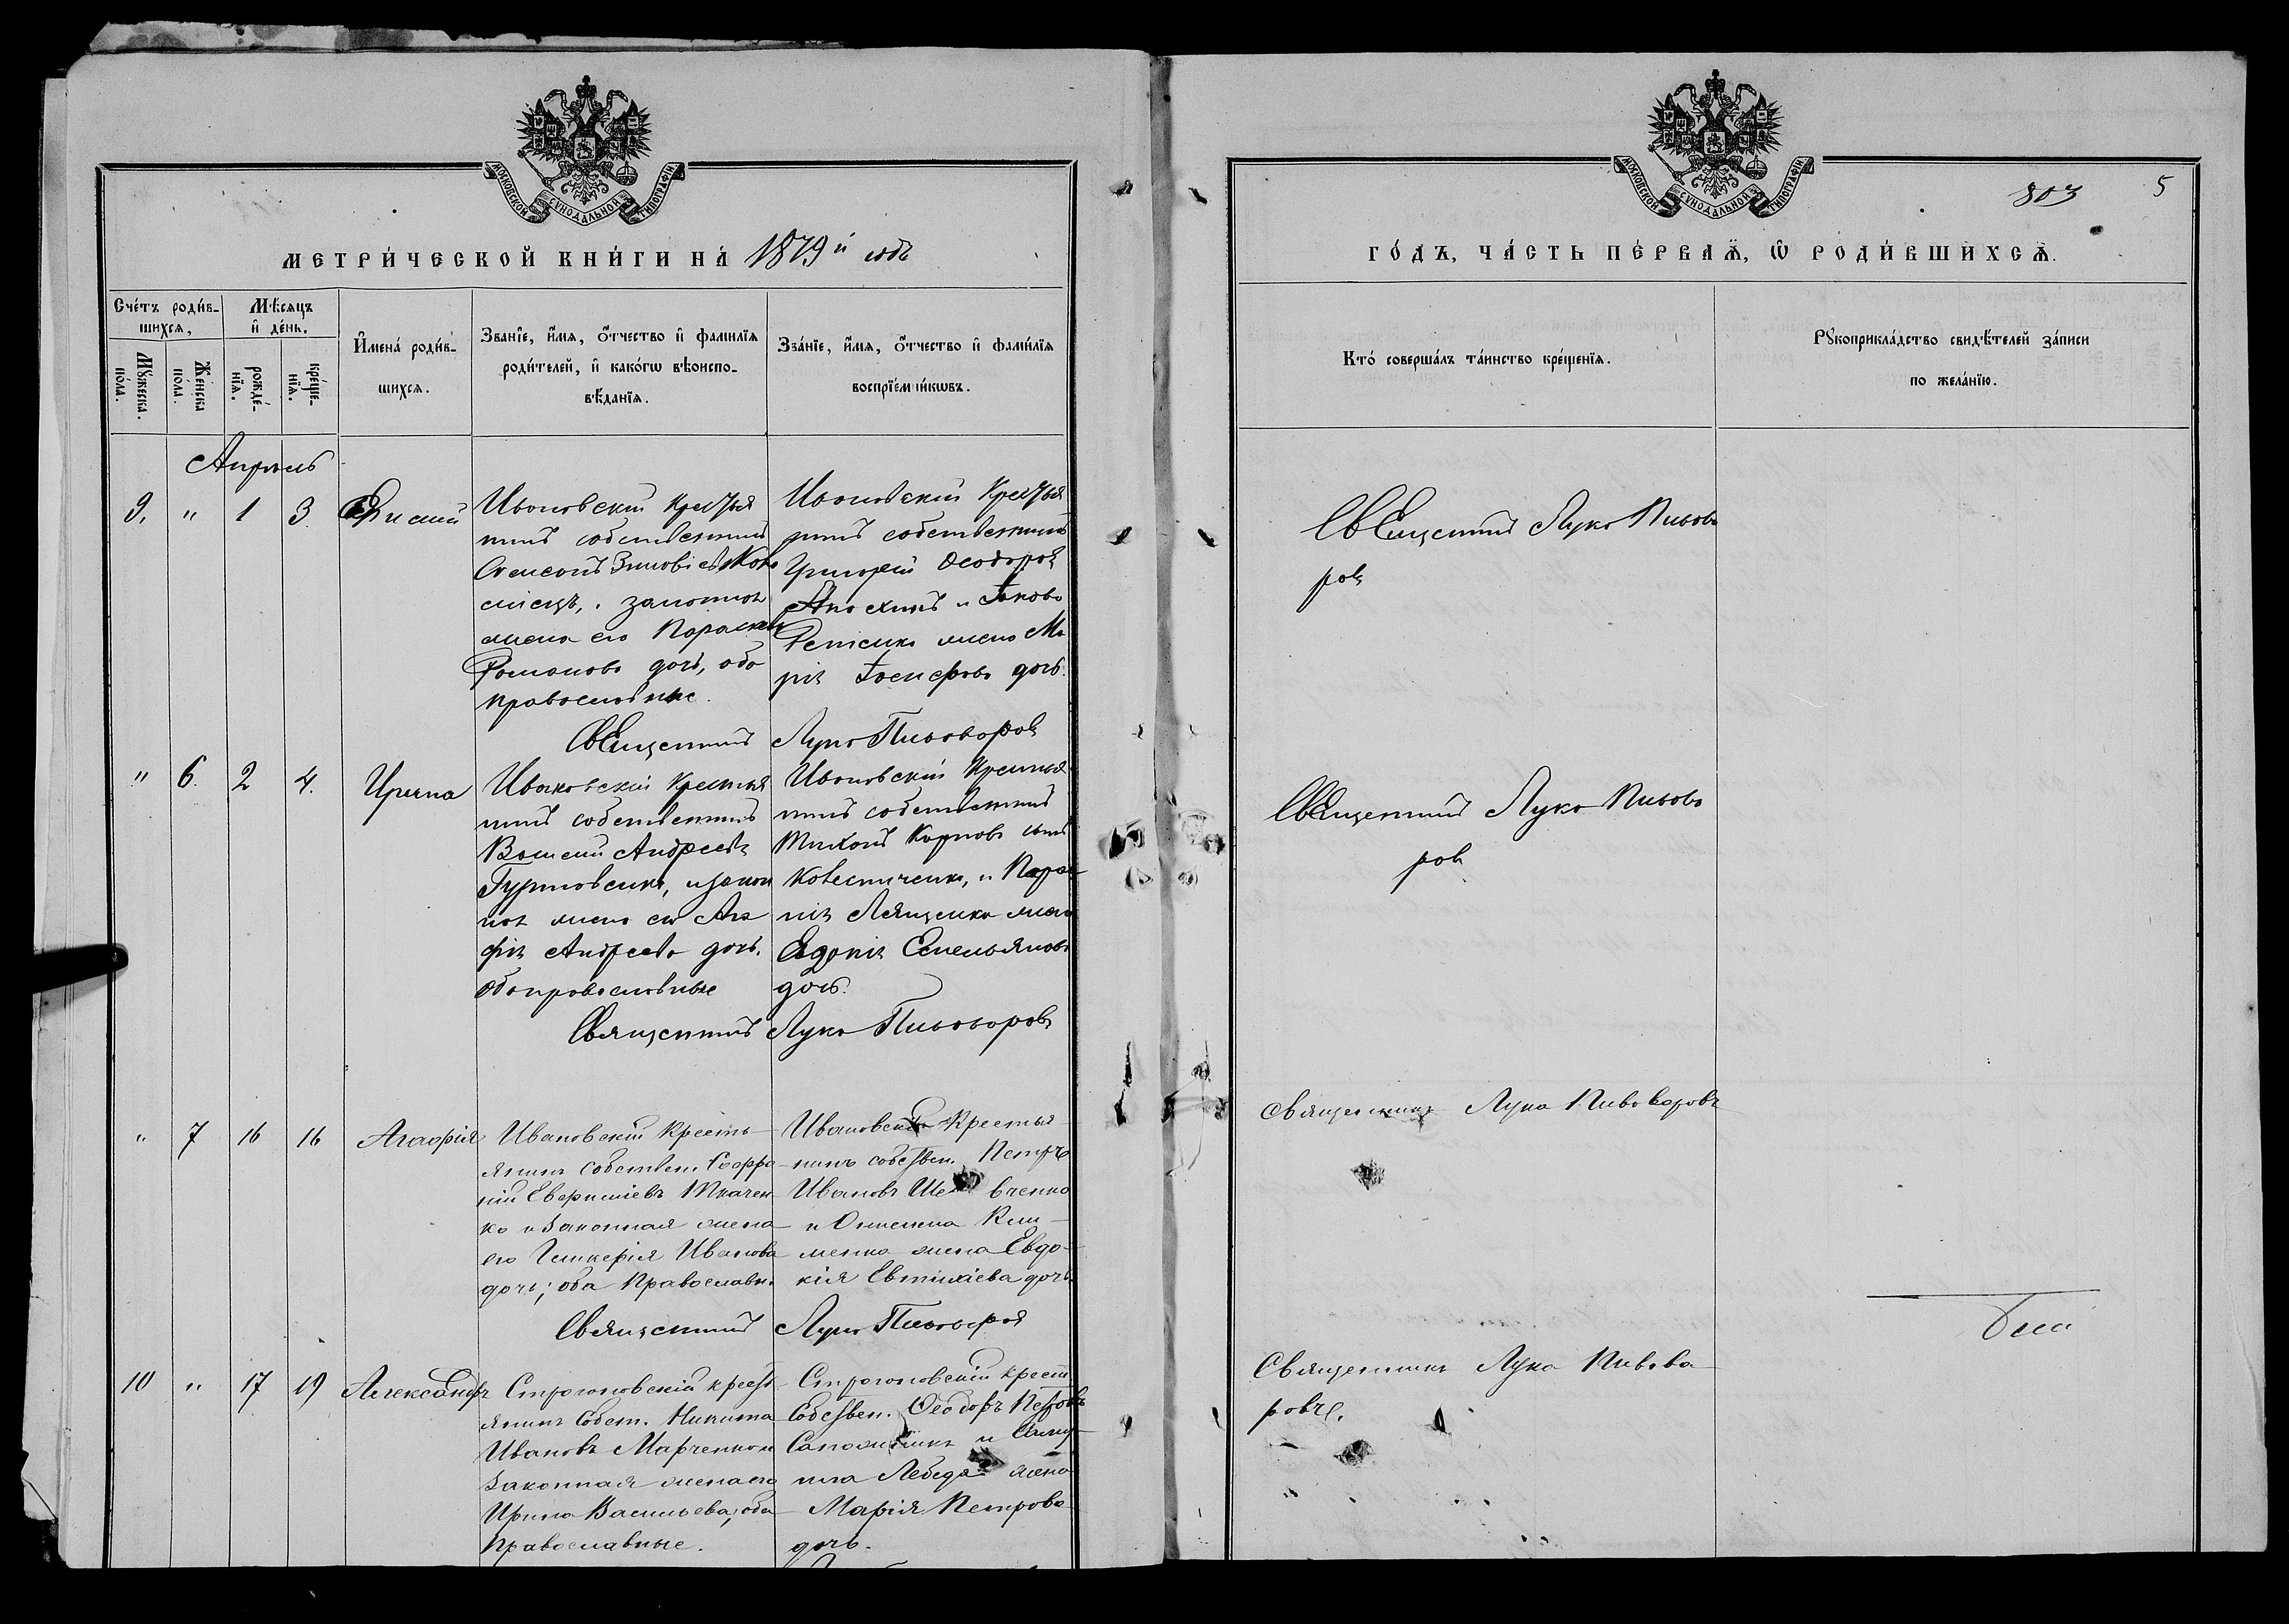 МОСКОВСКОЙ СѴНОДАЛЬНОЙ ТИПОГРАФІИ
МЕТРИ́ЧЕСКОЙ КНИ́ГИ НА́ 1879й годъ
Сче́тъ роди́в-
шихся,
Мѣсяцъ
и҆ де́нь.
Мꙋ́жеска
по́ла.
Же́нска
по́ла.
рожде́-
нїя.
креще́-
нїя.
И҆мена́ роди́в-
шихся.
Зва́нїе, и҆́мя, ѻ҆́тчество и҆ фами́лїя
роди́телей, и҆ како́гѡ вѣроиспо-
вѣ́данїя.
Зва́нїе, и҆́мя, ѻ҆́тчество и҆ фами́лїя
воспрїе́мникѡвъ.
Апрель
9. " 1 3.
Ивановскій Крестья
нинъ собственникъ
законная
жена его Параскева
Романова дочь, оба
православные.
Ивановскій Крестья
нинъ собственникъ
Григорій Ѳеодоровъ
и Іакова
жена Ма
рія Іосифова дочь.
Священникъ Лука Пивоваровъ
" 6. 2 4. Ирина
Ивановскій Крестья
нинъ собственникъ
Василій Андреевъ
и закон
ная жена его Ага
фія Андреева дочь.
оба православные
Ивановскій Крестья
нинъ собственникъ
Тихонъ Карповъ сынъ
Лященка жена
Евдокія Емельянова
дочь.
Священникъ Лука Пивоваровъ
" 7 16 16 Агафія
Ивановскій Кресть-
янинъ Собствен. Софро
ній Ткачен
ко и Законная жена
его Гликерія Иванова
дочь; оба Православн.
Ивановскій Крестья-
нинъ собствен. Петръ
Ивановъ Шевченко
и Кли-
менка жена Евдо-
кія Евтихіева дочь.
Священникъ Лука Пивоваровъ
10 " 17 19 Александръ
Строгоновскій крест
янинъ Собст. Никита
Ивановъ Марченко и
Законная жена его
Ирина Васильева; оба
Православные.
Строгоновскій крест.
Собствен. Ѳеодоръ Петровъ
Сапожникъ и
Лебедя жена
Марія Петрова
дочь.
МОСКОВСКОЙ СѴНОДАЛЬНОЙ ТИПОГРАФІИ
803 5
ГО́ДЪ, ЧА́СТЬ ПЕ́РВАЯ, Ѡ҆ РОДИ́ВШИХСЯ.
Кто́ соверша́лъ та́инство креще́нїя.
Рꙋкоприкла́дство свидѣ́телей за́писи
по жела́нїю.
Священникъ Лука Пивова
ровъ
Священникъ Лука Пивова
ровъ
Священникъ Лука Пивоваровъ
Священникъ Лука Пивова-
ровъ.